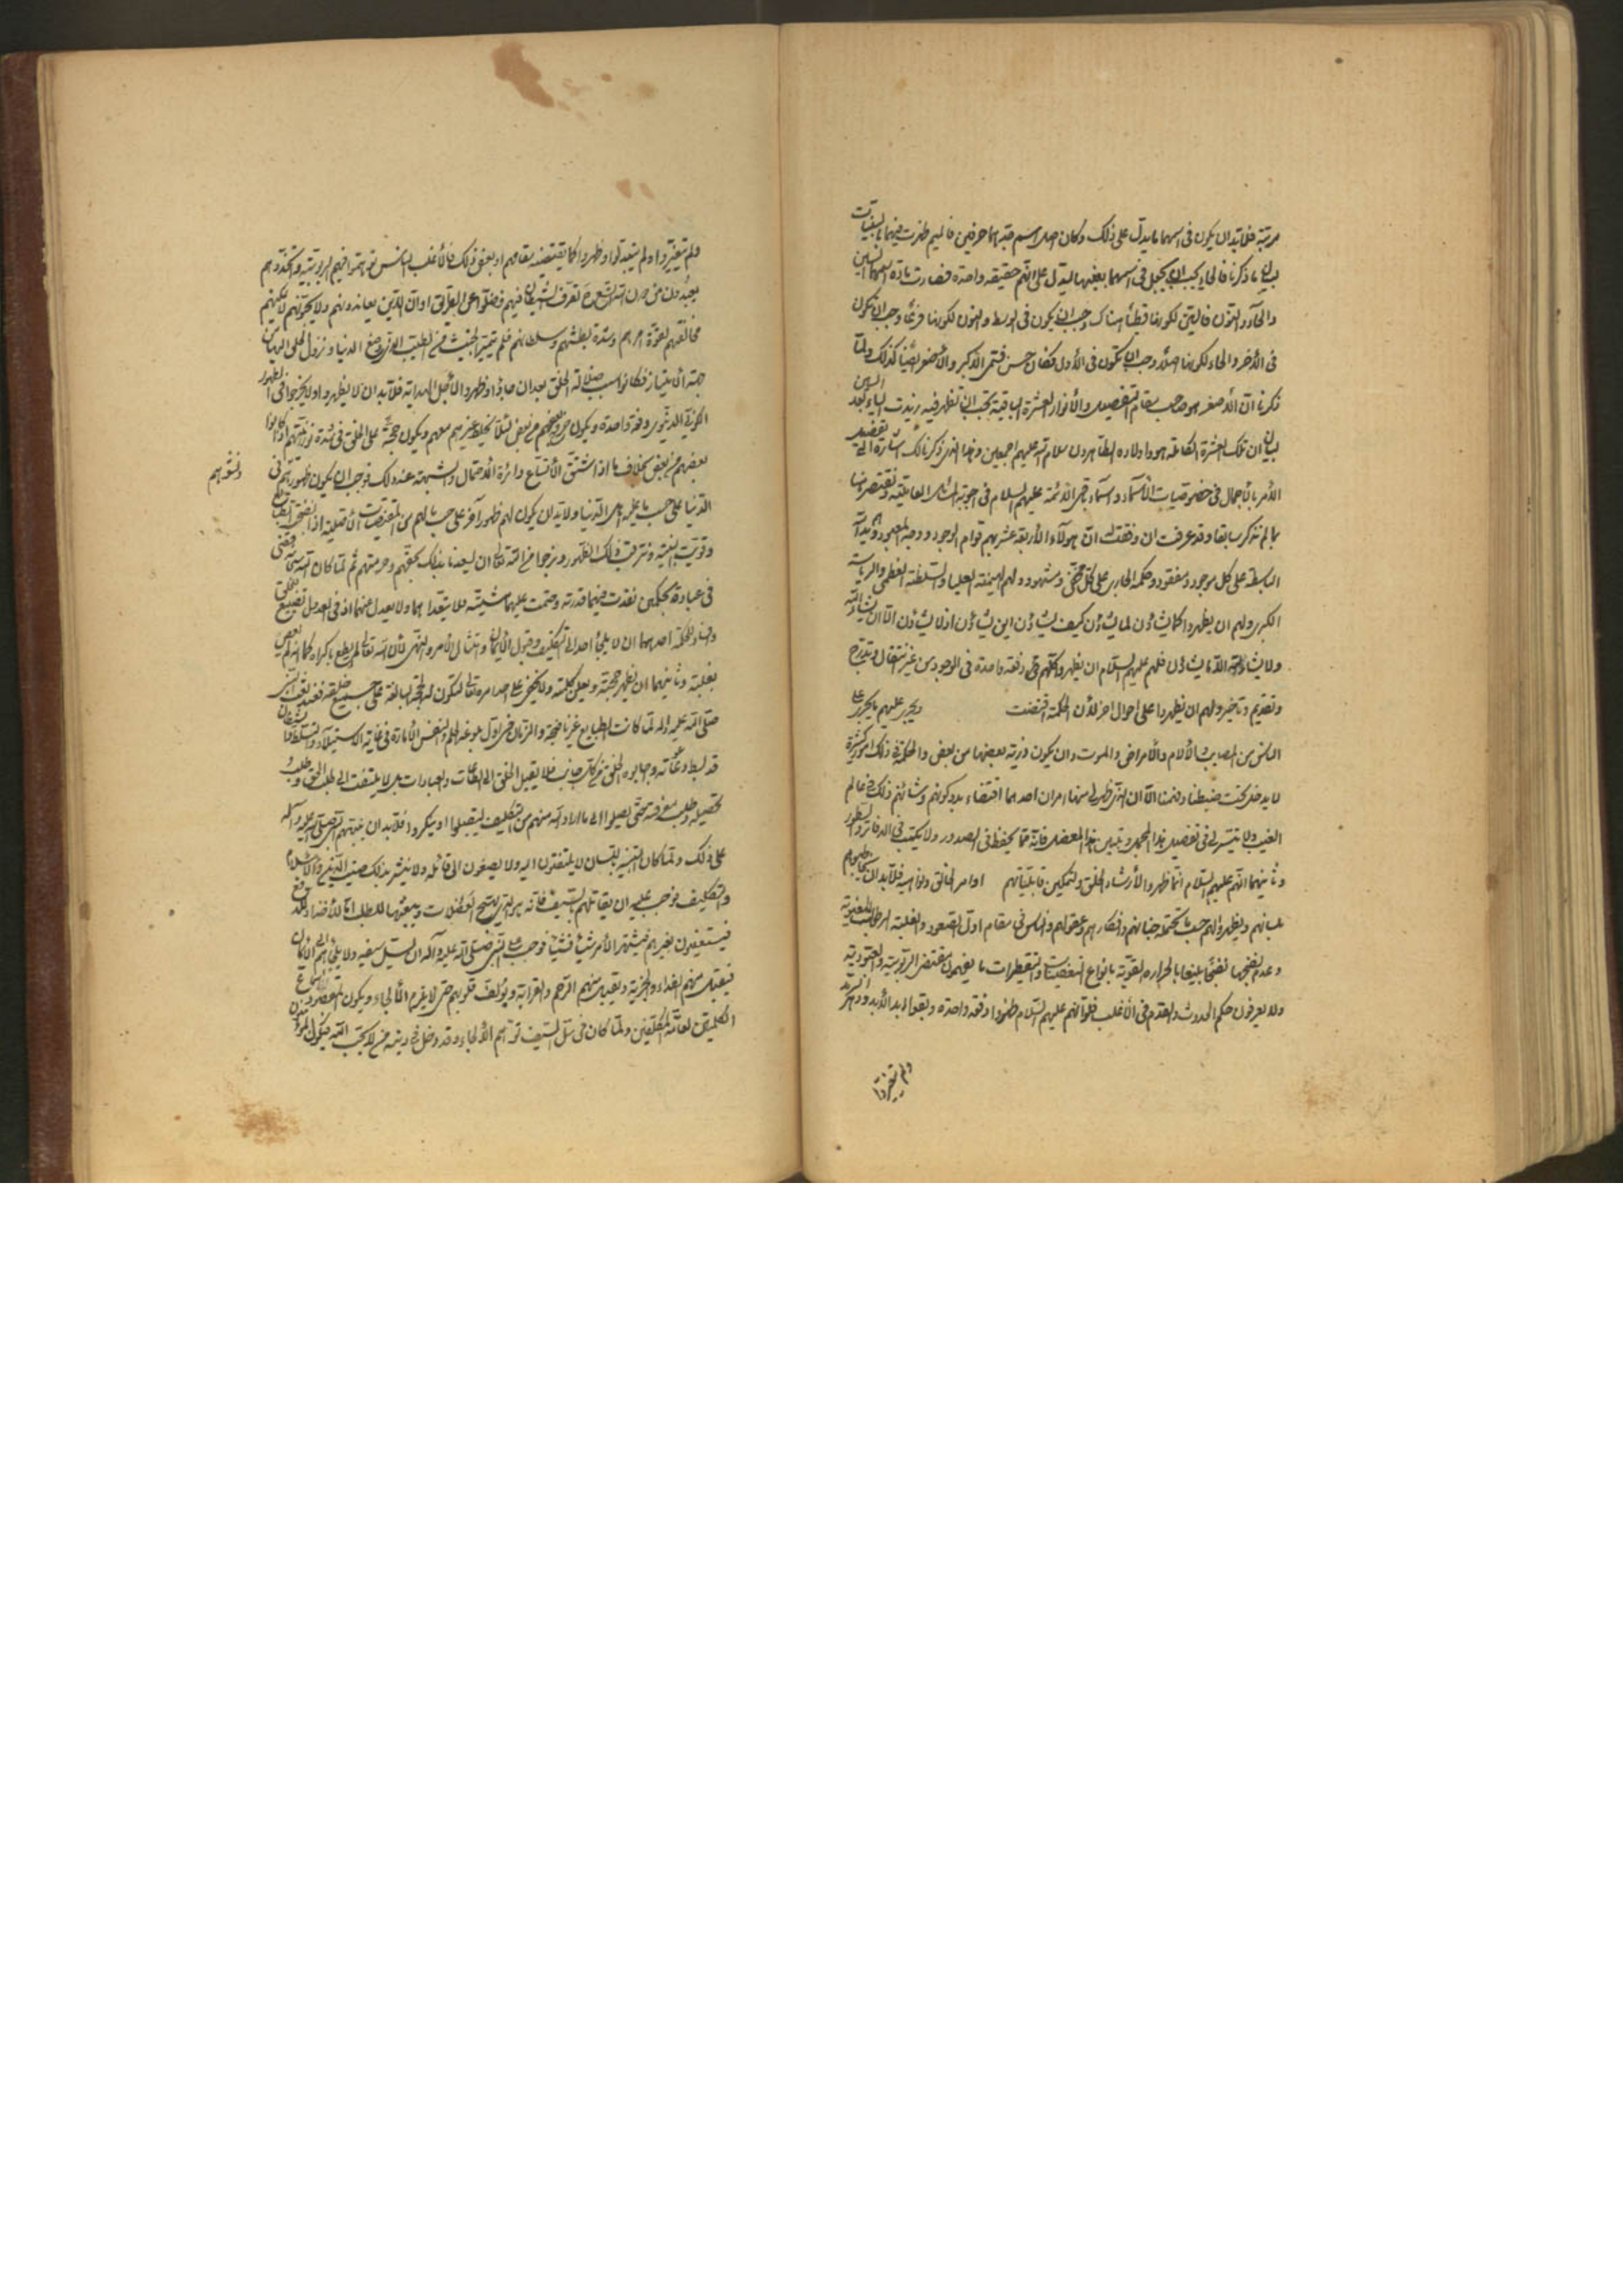 مرتبة فلابد ان يكون فى اسمهما ما يدل على ذلك وكان اصل اسم جدهما حرفين فالميم ظهرت فيهما
بيان ما ذكرنا فالحاء يجب ان يجعل فى اسمهما بعينها ليدل على انهم حقيقة واحدة فصارت مادة اسمهما السين
والحاء والنون فالسين لكونها قطبا هناك وجب ان يكون فى الوسط والنون لكونها فرعا وجب ان يكون
فى الآخر والحاء لكونها اصلا وجب ان تكون فى الأول فكان حسن فسمى الأكبر والأصغر ايضا كذلك ولما
ذكرنا ان الأصغر هو صاحب مقام التفصيل والأنوار العشرة الباقية يجب ان تظهر فيه زيدت الياء بعد السين
لبيان ان تلك العشرة الكاملة هو واولاده الطاهرون سلام الله عليهم اجمعين وهذا الذى ذكرنا لك اشارة الى تفصيل
الأمر بالأجمال فى خصوصيات الأسماء واسماء باقى الأئمة عليهم السلام فى اجوبة المسائل العاملية ونقتصر هنا
بما لم نذكر سابقا وقد عرفت ان وفقت ان هؤلاء الأربعة عشر بهم قوام الوجود ووجه المعبود
الباسطة على كل موجود ومفقود وحكمه الجارى على كل مخفى ومشهود ولهم الهيمنة العليا والسلطنة العظمى والرياسة
الكبرى ولهم ان يظهروا كما يشاؤن لما يشاؤن كيف يشاؤن اين يشاؤن اذ لا يشاؤن الا ان يشاء الله
ولا يشاء الله الا ما يشاؤن فلهم عليهم السلام ان يظهروا كلهم فى دفعة واحدة فى الوجود من غير انتقال وتدرج
وتقديم وتأخير ولهم ان يظهروا على احوال اخر لأن الحكمة اقتضت ويجرى عليهم ما يجرى على
الناس من المصايب والآلام والأمراض والموت وان يكون ذرية بعضها من بعض والحكمة فى ذلك امور كثيرة
لا يدخل تحت ضبطنا وفهمنا الا ان الذى ظهر لى منها امران احدهما اقتضاء بدو كونهم وشأنهم ذلك فى عالم
الغيب ولا يتيسر لى فى تفصيل هذا المجمل وتبيين هذا المعضل فانه مما يحفظ فى الصدور ولا يكتب فى الدفاتر والسطور
وثانيهما انهم عليهم السلام انما ظهروا لأرشاد الخلق ولتمكين قابلياتهم اوامر الخالق ونواهيه فلابد ان يخاطبوهم
بلسانهم ويظهروا لهم حسب ما تحتمله جنانهم وافكارهم وعقولهم والناس فى مقام اول الصعود والغلبة الرطوبات البلغمية
وعدم نضجها نضجا بليغا بالحرارة القوية بانواع التعفينات والتقطيرات ما يفهمون مقتضى الربوبية والعبودية
ولا يعرفون حكم الحدوث والقدم فى الأغلب فلو انهم عليهم السلام ظهروا دفعة واحدة وبقوا ابد الأبد ودهر السرمد
ولم يتغيروا
ولم يتغيروا ولم يتبدلوا وظهروا كما يقتضيه مقامهم او بعض ذلك فالأغلب الناس توهموا فيهم الربوبية واتخذوهم
يعبدون من دون الله لشيوع تصرف الشيطان فيهم فضلوا عن الطريق او ان الذين يعاندونهم ولا يحبونهم لا يمكنهم
مخالفتهم لقوة امرهم وشدة بطشهم وسلطانهم فلم يتميز الخبيث من الطيب الذى وضع الدنيا ونزول الخلق اليها
جهة الأمتياز فكانوا سبب ضلالة الخلق بعد ان جاؤا وظهروا لأجل الهداية فلابد ان لا يظهروا ولا يخرجوا فى الظهور
الكونى الدنيوى دفعة واحدة ويكون خروج بعضهم من بعض لئلا يختلط غيرهم معهم ويكون حجة على الخلق فى شدة نورانيتهم اذ كانوا
بعضهم من بعض بخلاف ما اذا اشتق الأتساع دائرة الأحتمال والشبهة عند ذلك فوجب ان يكون ظهورهم فى
ونشوهم
الدنيا على حسب ما عليه اهل الدنيا ولابد ان يكون لهم ظهور آخر على حسب ما لهم من المقتضيات الأصلية اذا نضجت الطبايع
وقويت البنية ونترقب ذلك الظهور ونرجوا من الله تعالى ان يسعدنا بذلك بحقهم وحرمتهم ثم لما كان الله سبحانه قضى
فى عباده بحكمين نفذت فيهما قدرته وحتمت عليهما مشيته فلا يتعداهما ولا يعدل عنهما اذ فى العدول تضييع الخلق
وافناء للحكمة احدهما ان لا يلجئ احدا الى التكليف وقبول الأيمان وامتثال الأمر والنهى لأن الله تعالى لم يطع باكراه كما انه لم يعص
بغلبة وثانيهما ان يظهر حجته ويعلى كلمته ولا يخفى على احد امره تعالى لتكون له الحجة البالغة على جميع خلقه
صلى الله عليه وآله لما كانت الطبايع غير ناضجة والزمان فى اول بلوغه الحلم والنفس الأمارة فى غاية الأستيلاء والتسلط والشيطان
قد بسط دعاته وجابوه الخلق من كل جانب فلا يقبل الخلق الى الطاعات والعبادات بل لا يلتفت الى طلب الحق وطلب
تحصيله وطلب معرفته حتى يصلوا الى ما اراد الله منهم من التكليف ليقبلوا او ينكروا فلابد ان ينبههم النبى صلى الله عليه وآله
على ذلك ولما كان التنبيه باللسان لا يلتفتون اليه ولا يصغون الى قائله ولا ينتشر بذلك صيت الدين والأسلام
والتكليف فوجب عليه ان يقاتلهم بالسيف فانه هو الذى يهيج العضلات ويبعثها للطلب اما للأضداد للدفع
فيستعينون بغيرهم فيشتهر الأمر شيئا فشيئا فوجب على النبى صلى الله عليه وآله ان يسل سيفه ولا يلجئهم الى الأيمان
فيقبل منهم الفداء والجزية ويقبل منهم الرحم والقرابة ويؤلف قلوبهم حتى لا يلزم الألجاء ويكون المقصود
الكلية لعامة المكلفين ولما كان فى سل السيف توهم الألجاء وقد دخل فى دينه من لا يحب الله